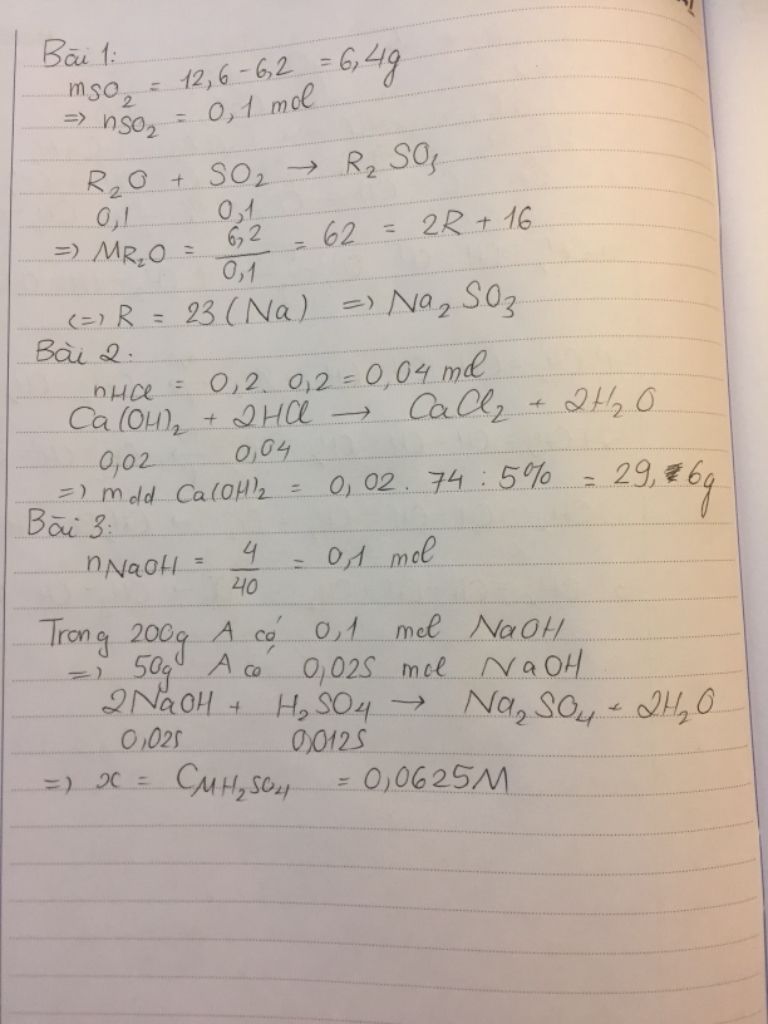 Bài 1:
mSO₂ = 12,6 - 6,2 = 6,4g
=> nSO₂ = 0,1 mol
R₂O + SO₂ → R₂SO₃
0,1 0,1
=> MR₂O = 6,2/0,1 = 62 = 2R + 16
<=> R = 23 (Na) => Na₂SO₃
Bài 2.
nHCl = 0,2. 0,2 = 0,04 mol
Ca(OH)₂ + 2HCl → CaCl₂ + 2H₂O
0,02 0,04
=> mdd Ca(OH)₂ = 0,02. 74 : 5% = 29,6g
Bài 3:
nNaOH = 4/40 = 0,1 mol
Trong 200g A có 0,1 mol NaOH
=> 50g A có 0,025 mol NaOH
2NaOH + H₂SO₄ → Na₂SO₄ + 2H₂O
0,025 0,0125
=> x = CMH₂SO₄ = 0,0625M